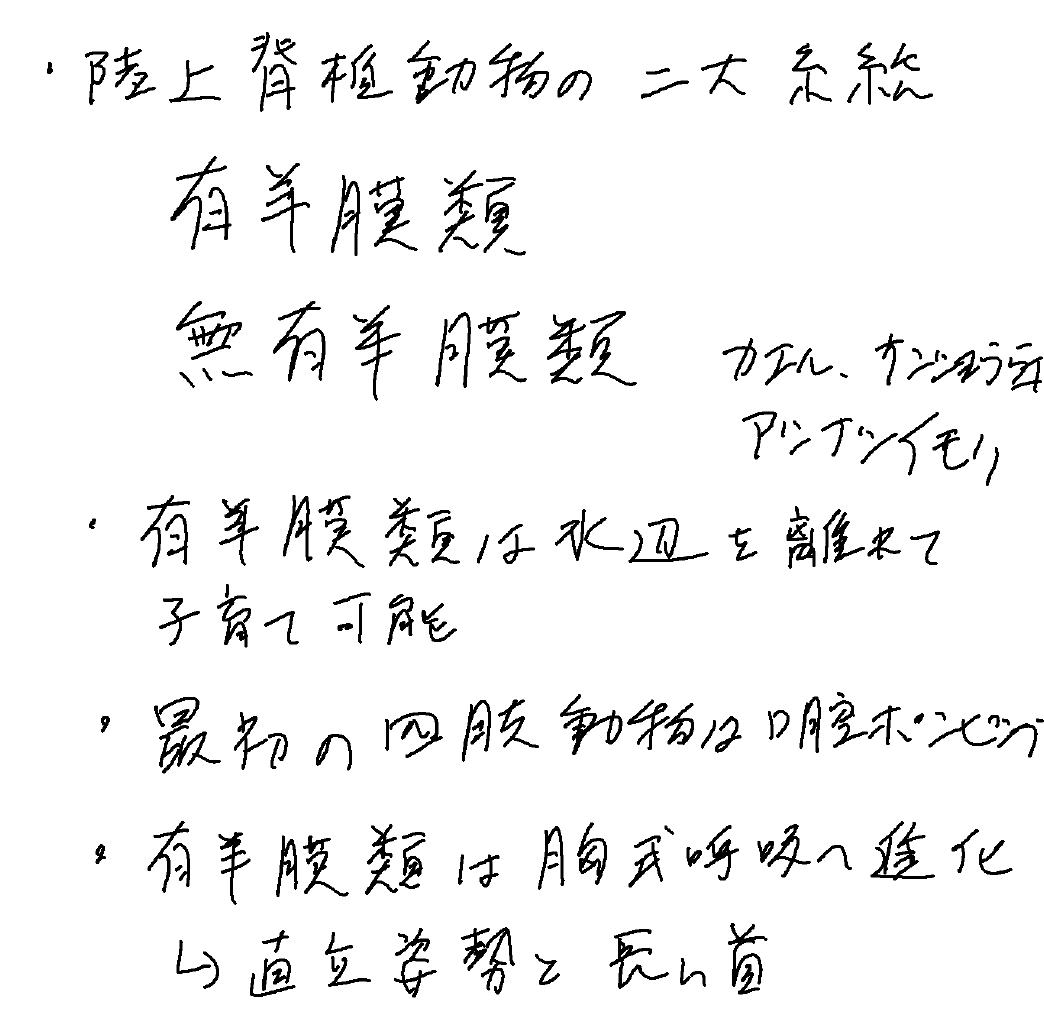 ・陸上脊椎動物の二大系統
有羊膜類
無有羊膜類
カエル、サンショウウオ
アシナシイモリ
・有羊膜類は水辺を離れて
子育て可能
・最初の四肢動物は口腔ポンピング
・有羊膜類は胸式呼吸へ進化
↳直立姿勢と長い首